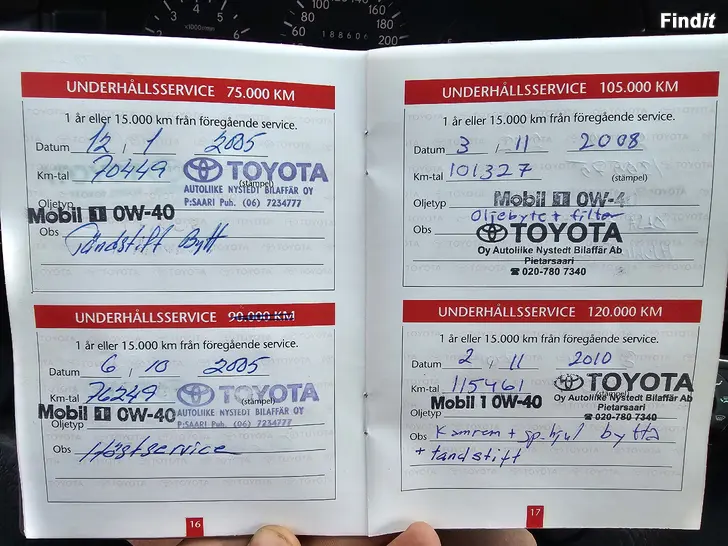 Findit
188606
UNDERHÅLLSSERVICE 75.000 KM
1 år eller 15.000 km från föregående service.
Datum 12 , 1 2005
Km-tal 70449
TOYOTA
(stämpel)
AUTOLIIKE NYSTEDT BILAFFÄR OY
P:SAARI Puh. (06) 7234777
Oljetyp
Mobil 1 0W-40
Obs Tändstift Bytt
UNDERHÅLLSSERVICE 90.000 KM
1 år eller 15.000 km från föregående service.
Datum 6 , 10 2005
Km-tal 76249
TOYOTA
(stämpel)
AUTOLIIKE NYSTEDT BILAFFÄR OY
P:SAARI Puh. (06) 7234777
Mobil 1 0W-40
Oljetyp
Obs Höstservice
16
UNDERHÅLLSSERVICE 105.000 KM
1 år eller 15.000 km från föregående service.
Datum 3 , 11 2008
Km-tal 101327
(stämpel)
Oljetyp Mobil 1 0W-4
Oljebyte + filter
Obs TOYOTA
Oy Autoliike Nystedt Bilaffär Ab
Pietarsaari
☎ 020-780 7340
UNDERHÅLLSSERVICE 120.000 KM
1 år eller 15.000 km från föregående service.
Datum 2 , 11 2010
Km-tal 115461
TOYOTA
(stämpel)
Mobil 1 0W-40
Oy Autoliike Nystedt Bilaffär Ab
Pietarsaari
☎ 020-780 7340
Oljetyp
Obs Kamrem + sp.hjul bytta
+ tandstift
17